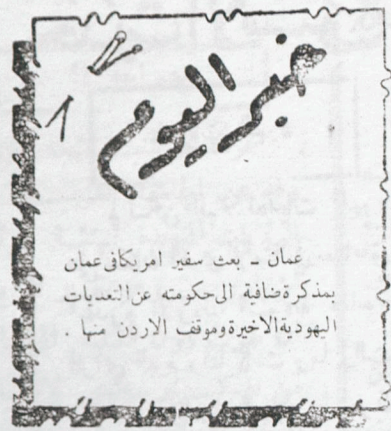 خبر اليوم
عمان - بعث سفير امريكا في عمان
بمذكرة ضافية الى حكومته عن التعديات
اليهودية الاخيرة وموقف الاردن منها .